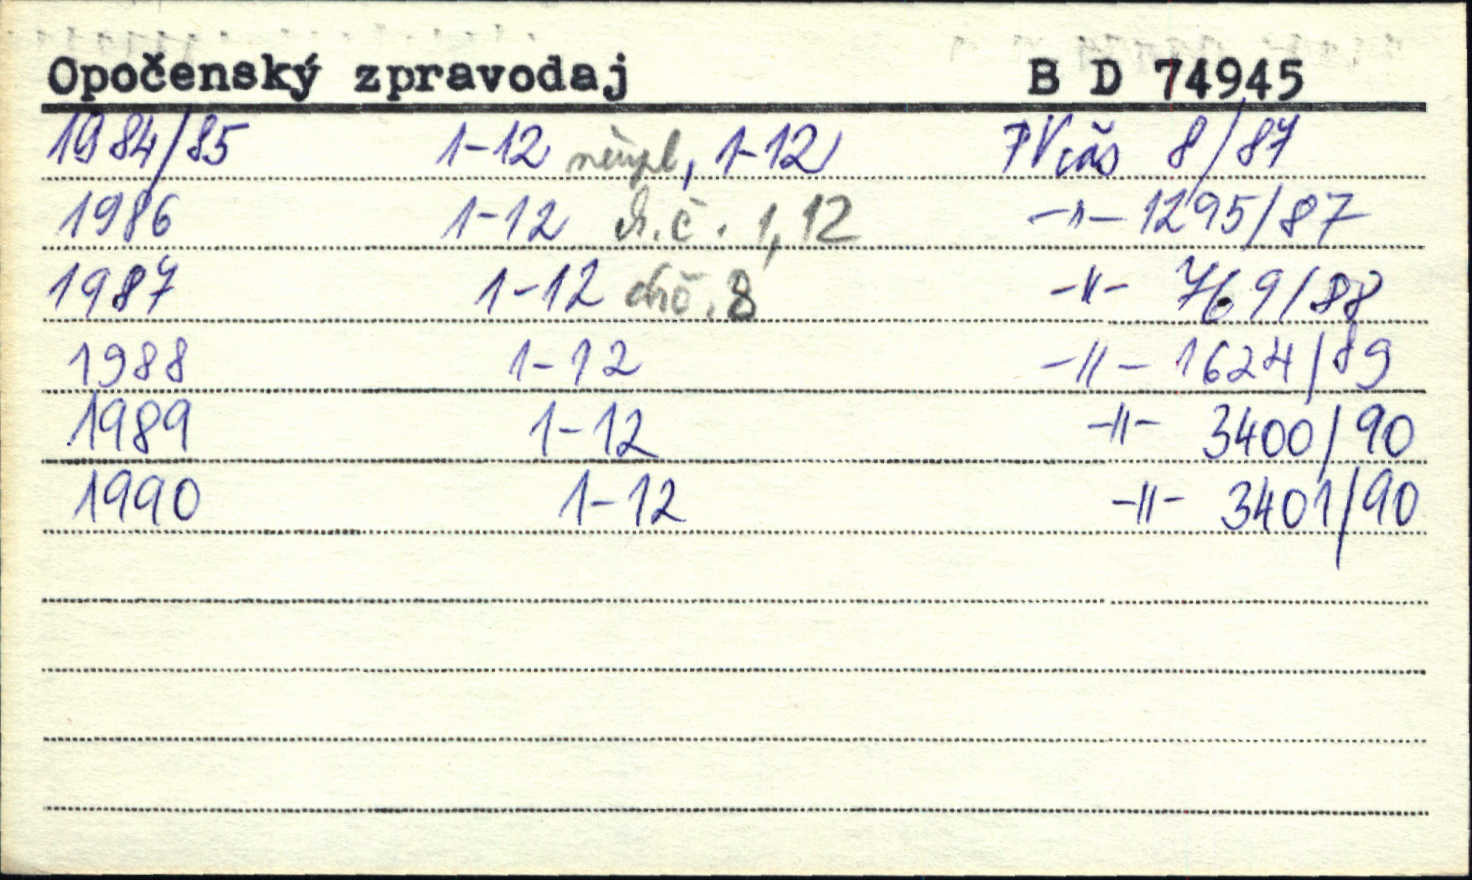 Opočenský zpravodaj B D 74945
1984/85 1-12 neúpl, 1-12 PVčás 8/87
1986 1-12 ch.č. 1,12 -"- 1295/87
1987 1-12 chč. 8 -"- 769/88
1988 1-12 -"- 1624/89
1989 1-12 -"- 3400/90
1990 1-12 -"- 3401/90